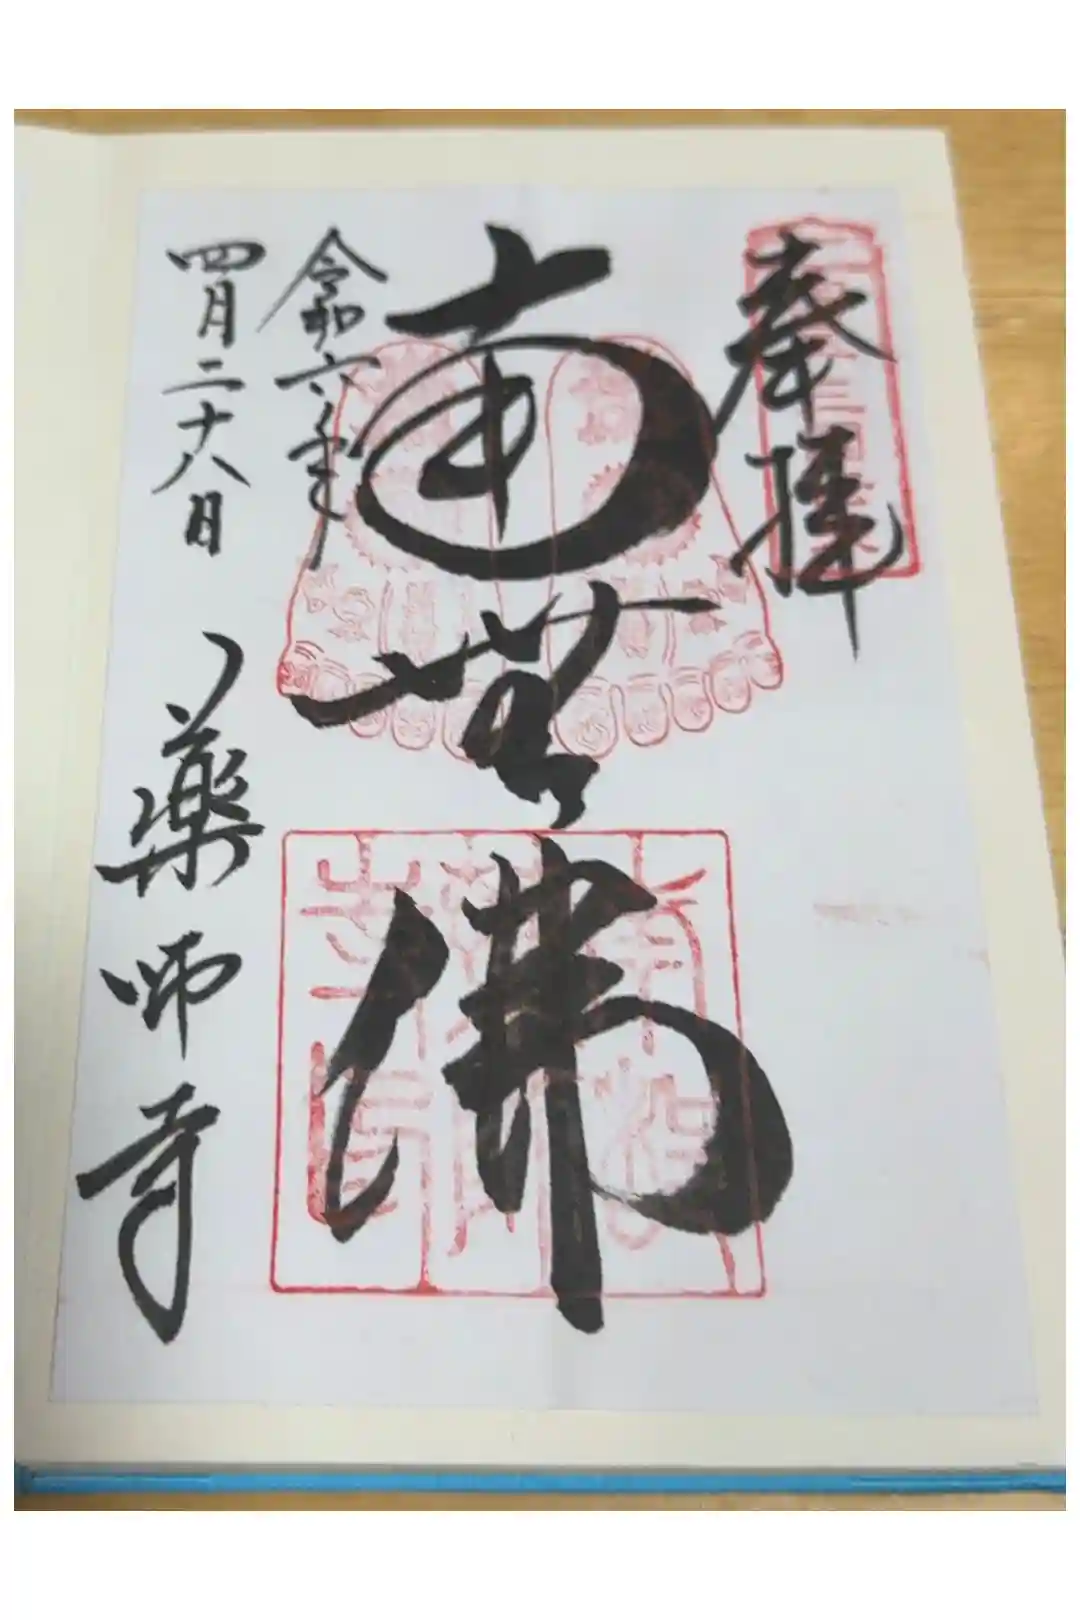 奉拝
南無佛
令和六年
四月二十八日
薬師寺